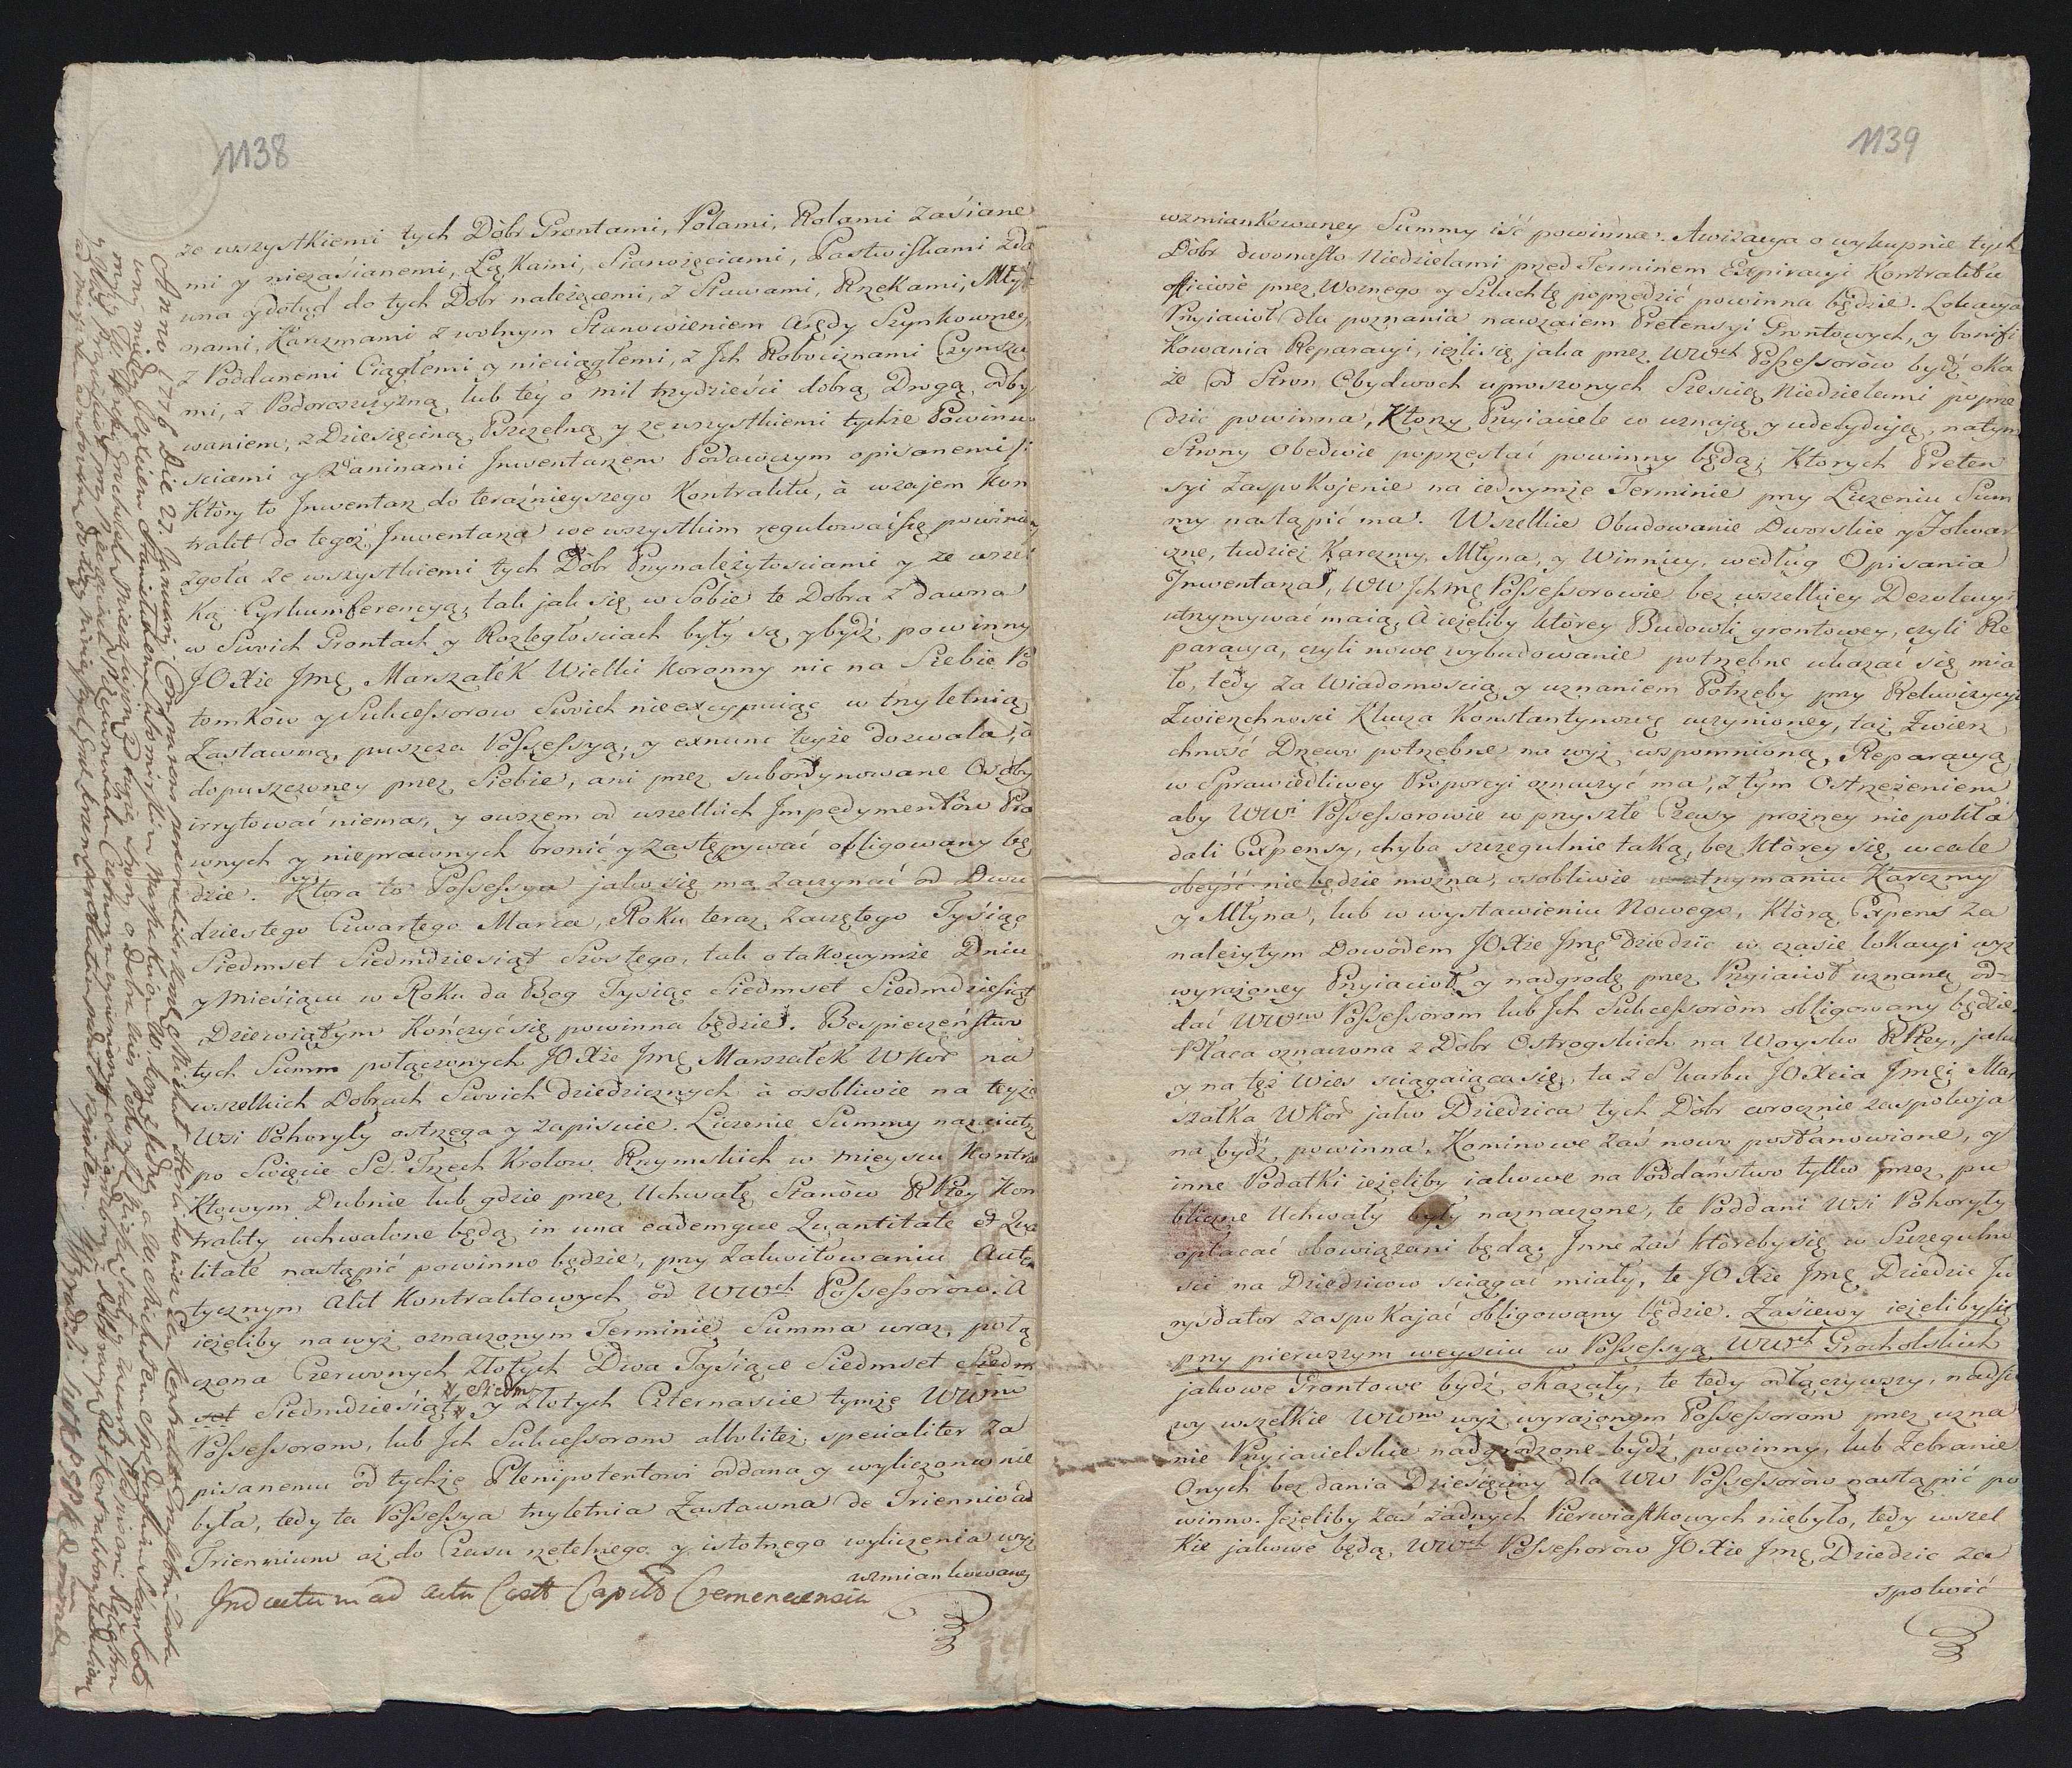 1138
ze wszystkiemi tych Dóbr Grontami, Polami, Rolami zasiane
mi y niezasianemi, Łąkami, Sianożęciami, Pastwiskami zda
wna y dotąd do tych Dobr należącemi, z Stawami, Rzekami, Mły
nami, Karczmami z wolnym Stanowieniem Arędy Szynkowney,
z Poddanemi Ciągłemi y nieciągłemi, z Jch Robociznami Czynsza
mi, z Podoroszczyzną, lub tey o mil trzydzieści dobrą Drogą odby
waniem, z Dziesięciną Pszczelną y ze wszystkiemi tychże Powinno
sciami y Daninami Jnwentarzem Podawczym opisanemi
Który to Jnwentarz do teraźnieyszego Kontraktu, à wzajem Kon
trakt do tegoż Jnwentarza we wszystkim regulować się powinien
zgoła ze wszystkiemi tych Dóbr Przynależytościami y ze wszel
ką Cyrkumferencyą, tak jak się w Sobie te Dobra z dawna
w Swoich Grontach y Rozległościach były są, y bydź powinny
JO Xże Jmę Marszałek Wielki Koronny nic na Siebie Po
tomków y Sukcessorow Swoich nieexcypuiąc w trzyletnią
Zastawną, puszcza Possessyą, y exnunc teyże dozwala, à
dopuszczoney przez Siebie, ani przez subordynowane Osoby
irrytować niema, y owszem od wszelkich Jmpedymentów Pra
wnych y nieprawnych bronić y zastępywać obligowany bę
dzie. Ktora to Possessya jako się ma zaczynać od Dwu
dziestego Czwartego Marca, Roku teraz zaczętego Tysiąc
Siedmset Siedmdziesiąt Szostego, tak o takowymże Dniu
y Miesiącu w Roku da Bog Tysiąc Siedmset Siedmdziesiąt
Dziewiątym kończyć się powinna będzie. Bespieczeństwo
tych Summ połączonych JO Xże Jmę Marszałek WKor na
wszelkich Dobrach Swoich dziedzicznych à osobliwie na teyże
Wsi Pohoryły ostrzega y zapisuie. Liczenie Summy nazaiutrz
po Święcie Stch Trzech Krolow Rzymskich w mieyscu Kontra
Ktowym Dubnie lub gdzie przez Uchwałę Stanów RPtey Kon
trakty uchwalone będą in una eademque Quantitate et Qua
litate nastąpić powinno będzie, przy zakwitowaniu Auten
tycznym Akt Kontraktowych od WWch Possessorów. A
ieżeliby na wyż oznaczonym Terminie Summa wraz połą
czona Czerwonych Złotych Dwa Tysiące Siedmset Siedm
set Siedmdziesiąt y Siedm y złotych Czternascie tymże WWm
Possessorom, lub Jch Sukcessorom albo liteż specialiter za
pisanemu od tychże Plenipotentowi oddana y wyliczona nie
była, tedy ta Possessya trzyletnia Zastawna de Triennio ad
Triennium aż do Czasu rzetelnego y istotnego wyliczenia wyż
wzmiankowaney
Jnductum ad Acta Castr Capitlia Cremenecensia
Anno 1776 Die 27. January
1139
wzmiankowaney Summy iść powinna. Awizacya o wykupnie tych
Dobr dwonasto Niedzielami przed Terminem Expiracyi Kontraktu
officiose przez Woznego y Szlachtę poprzedzić powinna będzie. Lokacya
Przyiaciół dla poznania nawzaiem Pretensyi Grontowych, y bonifi
kowania Reparacyi, ieżli się jaka przez WWch Possessorów bydź oka
że od Stron Obydwoch uproszonych Szescią Niedzielami poprze
dzić powinna, Ktorzy Przyiaciele co uznają y udecydują, na tym
Strony Obedwie poprzestać powinny będą; Ktorych Preten
syi Zaspokojenie na iednymże Terminie przy Liczeniu Sum
my nastąpić ma. Wszelkie Obudowanie Dworskie y Folwar
czne, tudzież Karczmy, Młyna, y Winnicy, według Opisania
Jnwentarza, WW JchMę Possessorowie bez wszelkiey Dezolacyi
utrzymywać maią, À ieżeliby któréy Budowli grontowey, czyli Re
paracya, czyli nowe wybudowanie potrzebne ukazać się mia
ło, tedy za Wiadomością y uznaniem Potrzeby przy Rekwizycyi
Zwierzchnosci Klucza Konstantynowę uczynioney, taż Zwierz
chność Drzewo potrzebne na wyż wspomnioną, Reparacyą
w Sprawiedliwey Proporcyi oznaczyć ma, z tym Ostrzeżeniem
aby WWi Possessorowie w przyszłe Czasy prożney nie pokła
dali Expensy, chyba szczegulnie taką, bez którey się wcale
obeyść nie będzie można, osobliwie w utrzymaniu Karczmy
y Młyna, lub w wystawieniu Nowego, Którą Expens za
należytym Dowodem JO Xże Jmę Dziedzic w czasie lokacyi wyż
wyrażoney Przyiaciół y nadgrodę przez Przyiaciół uznaną od-
dać WWm Possessorom lub Jch Sukcessoróm obligowany będzie
Płaca oznaczona z Dóbr Ostrogskich na Woysko RPtey, jako
y na też Wieś sciągaiąca się, ta z Skarbu JO Xcia Jmci Mar
szałka WKor jako Dziedzica tych Dóbr corocznie zaspokoja
na bydź powinna, Kominowe zaś nowo postanowione, y
inne Podatki ieżeliby iakowe na Poddaństwo tylko przez pu
bliczne Uchwały były naznaczone, te Poddani Wsi Pohoryły
opłacać obowiązani będą; Jnne zaś ktoreby się w Szczegulno
sci na Dziedzicow sciągać miały, te JO Xże Jmę Dziedzic Ju
rysdator zaspokajać obligowany będzie. Zasiewy ieżeliby się
przy pierwszym weysciu w Possessyą WWch Grocholskich
jakowe Grontowe bydź okazały, te tedy odłączywszy, nadsie
wy wszelkie WWm wyż wyrażonym Possessorom przez uzna
nie Przyiacielskie nadgrodzone bydź powinny, lub Zebranie
Onych bez dania Dziesięciny dla WW Possessorów nastąpić po
winno. Jeżeliby zaś żadnych Pierwiastkowych niebyło, tedy wszel
kie jakowe będą, WWch Possessorow JO Xże Jmę Dziedzic za
spokoić